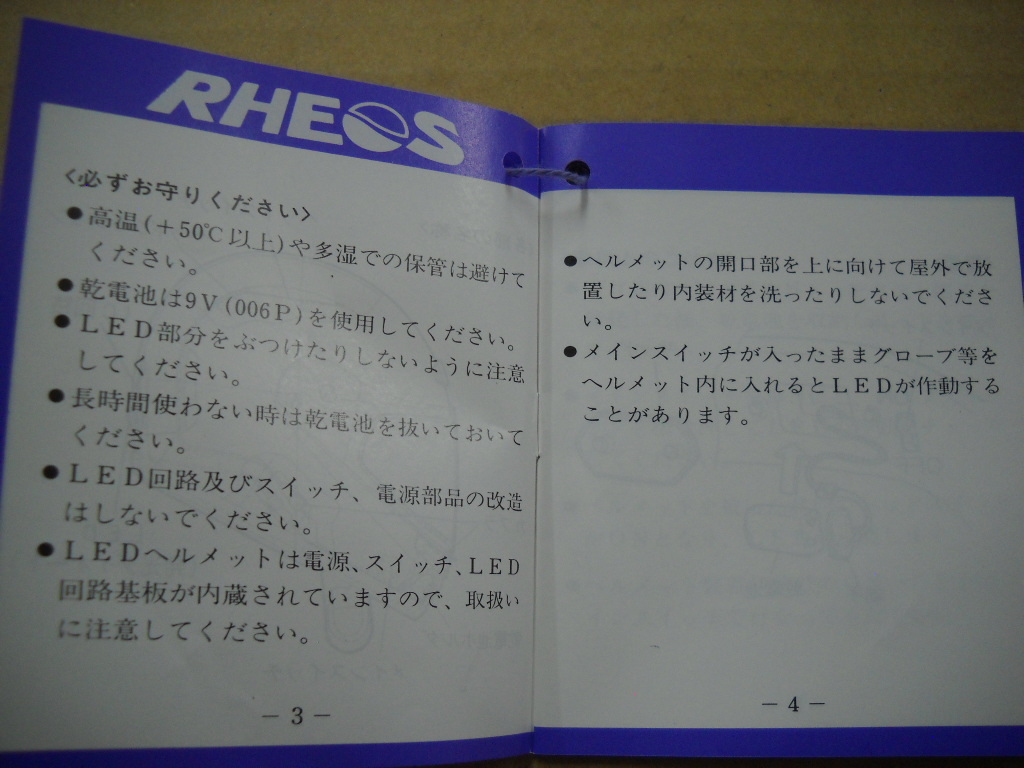 RHEOS
〈必ずお守りください〉
●高温(+50℃以上)や多湿での保管は避けて
ください。
●乾電池は9V(006P)を使用してください。
●LED部分をぶつけたりしないように注意
してください。
●長時間使わない時は乾電池を抜いておいて
ください。
●LED回路及びスイッチ、電源部品の改造
はしないでください。
●LEDヘルメットは電源、スイッチ、LED
回路基板が内蔵されていますので、取扱い
に注意してください。
－3－
●ヘルメットの開口部を上に向けて屋外で放
置したり内装材を洗ったりしないでくださ
い。
●メインスイッチが入ったままグローブ等を
ヘルメット内に入れるとLEDが作動する
ことがあります。
－4－